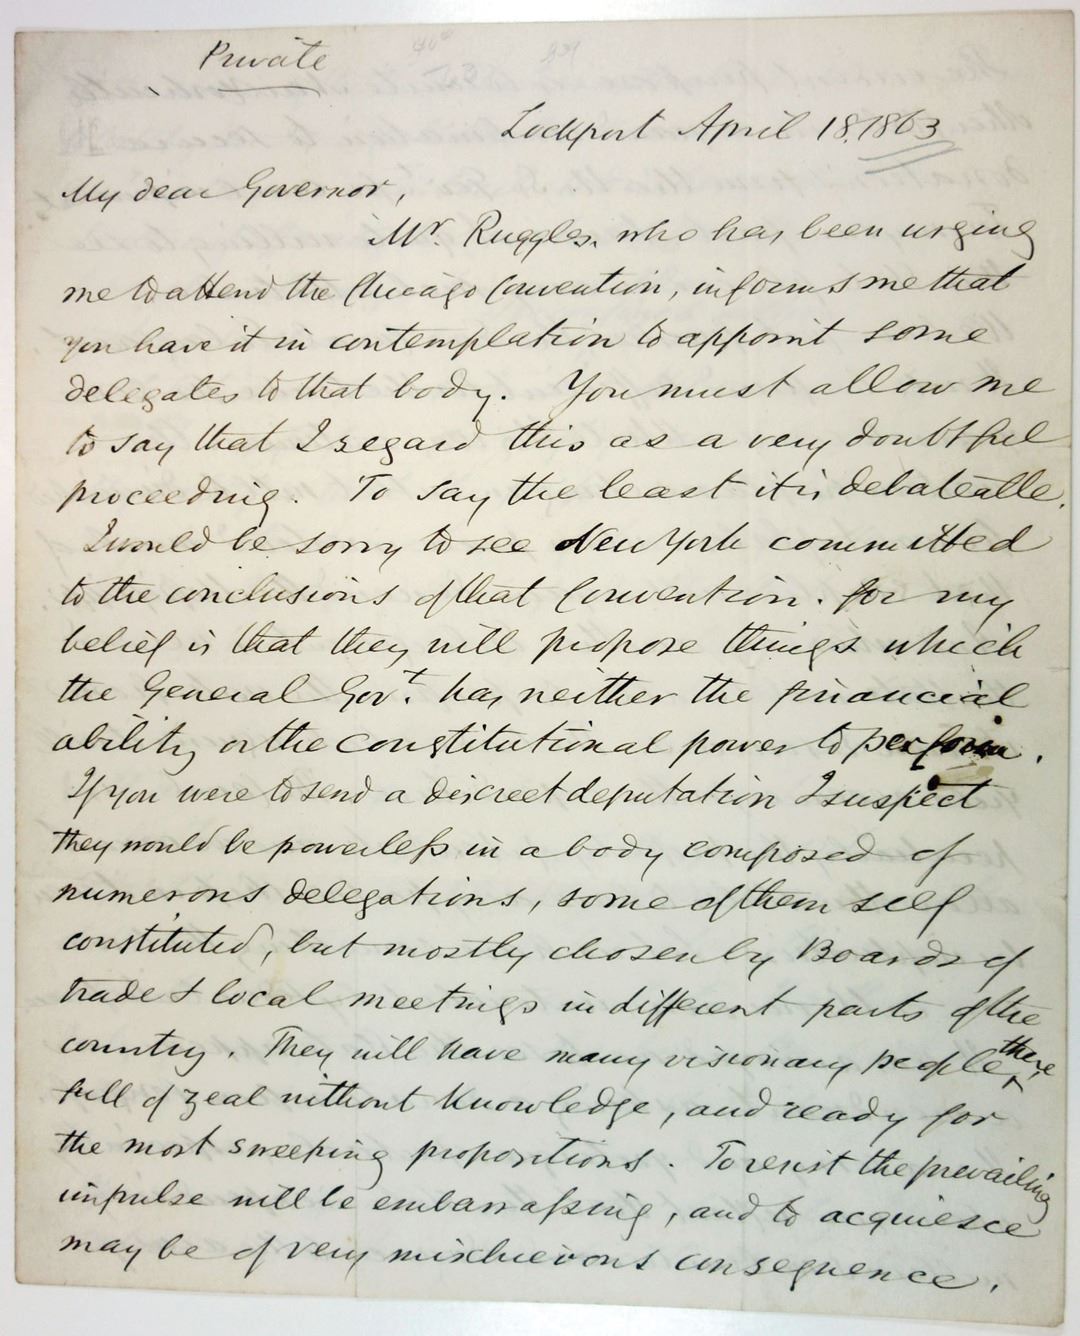 Private
Lockport April 18, 1863
My dear Governor,
Mr. Ruggles, who has been urging
me to attend the Chicago Convention, informs me that
you have it in contemplation to appoint some
delegates to that body. You must allow me
to say that I regard this as a very doubtful
proceeding. To say the least it is debateable.
I would be sorry to see New York committed
to the conclusions of that Convention. for my
belief is that they will propose things which
the General Govt. has neither the financial
ability or the constitutional power to perform.
If you were to send a discreet deputation I suspect
they would be powerless in a body composed of
numerous delegations, some of them self
constituted, but mostly chosen by Boards of
trade & local meetings in different parts of the
country. They will have many visionary people there,
full of zeal without knowledge, and ready for
the most sweeping propositions. To resist the prevailing
impulse will be embarrassing, and to acquiesce
may be of very mischievous consequence.